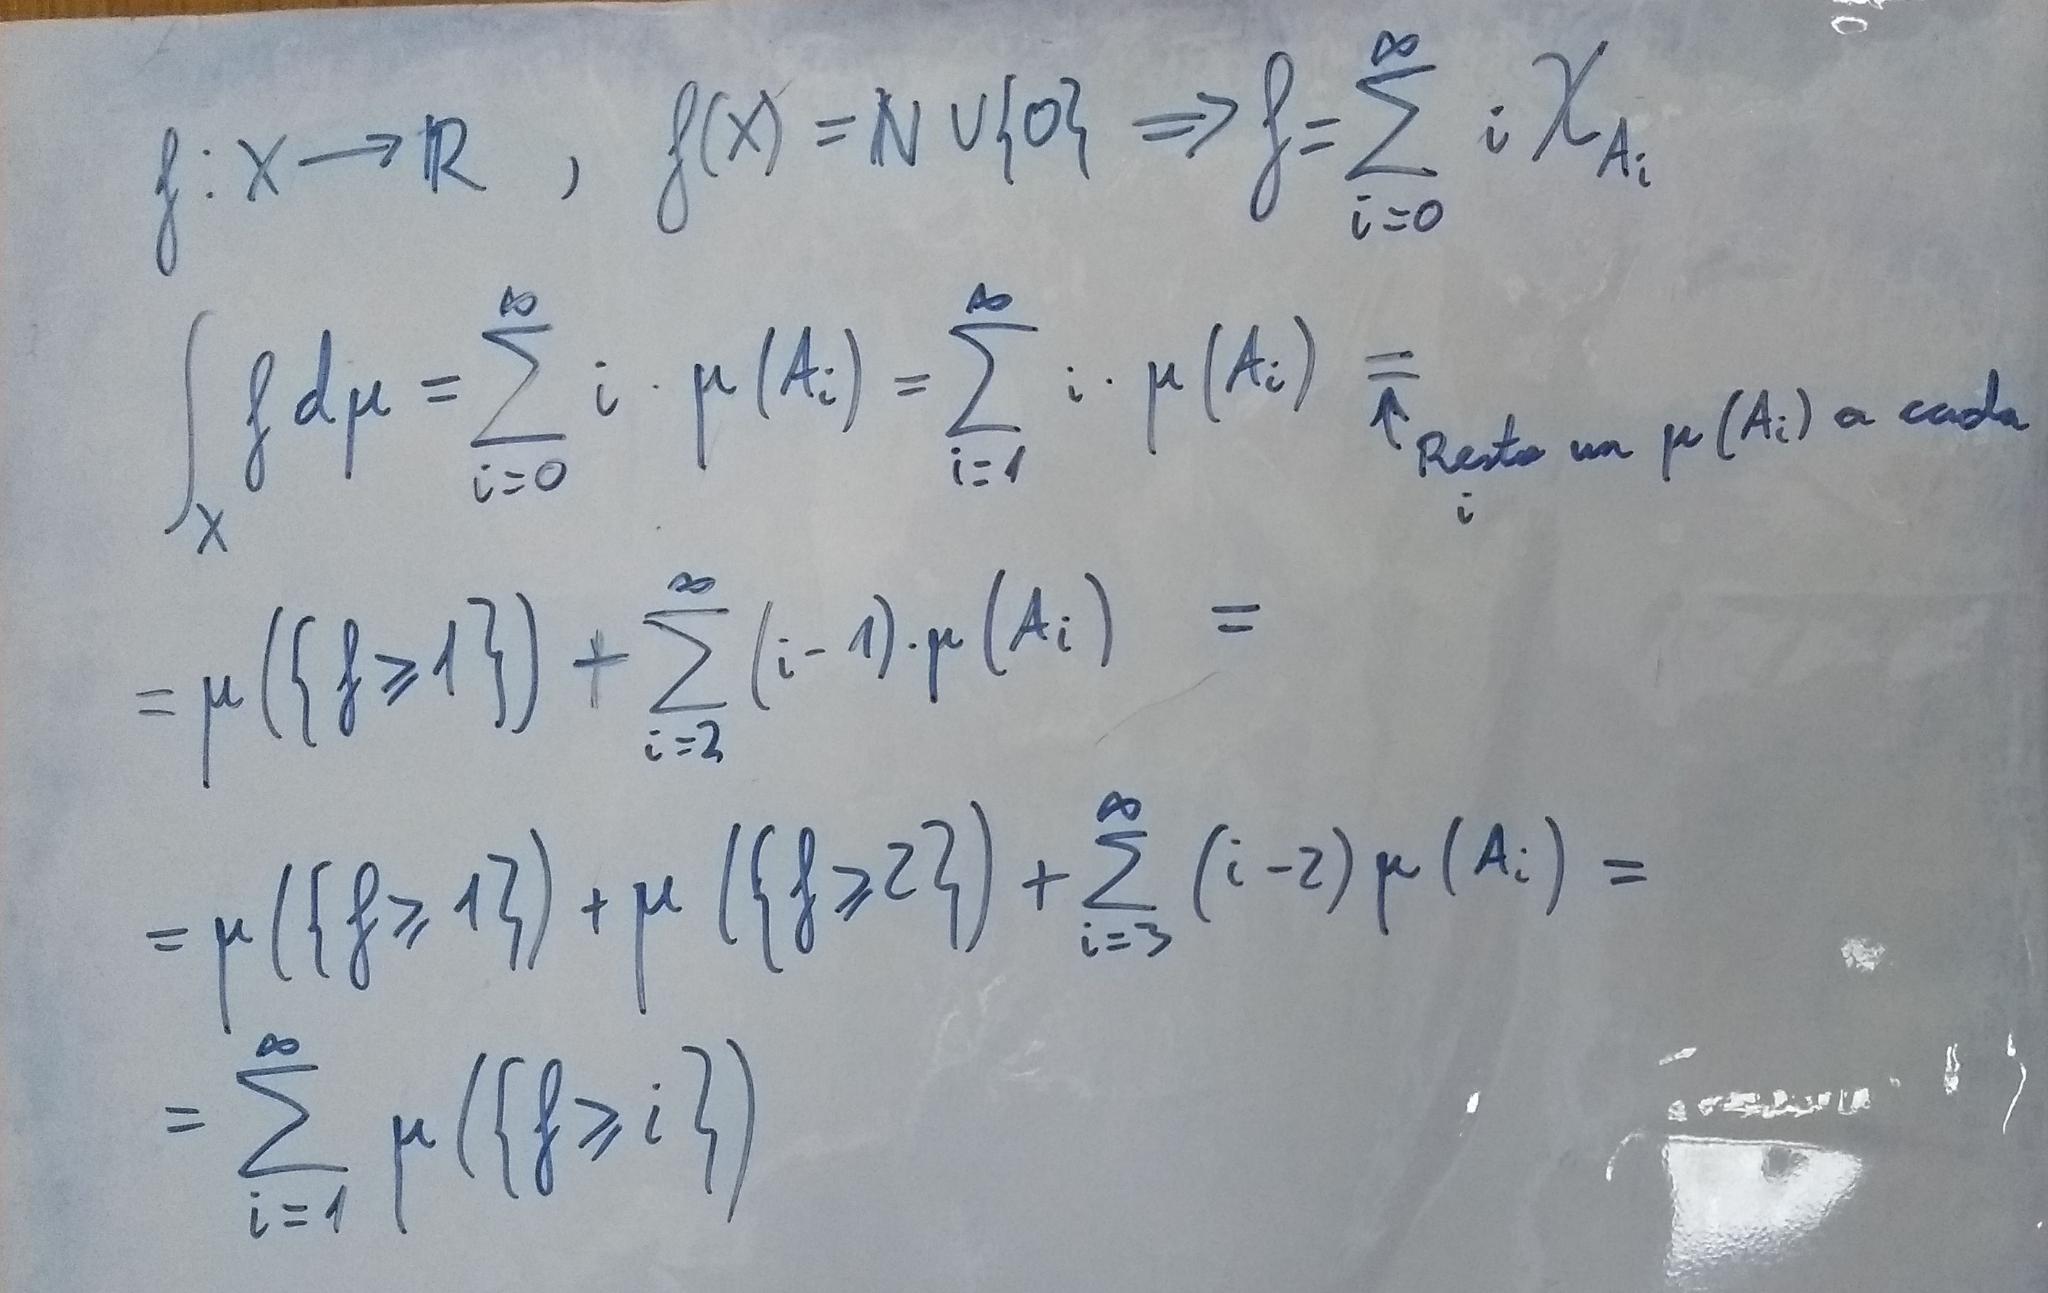 f: X → ℝ , f(X) = ℕ ∪ {0} ⇒ f = ∑_{i=0}^{∞} i χ_{A_i}
∫_X f dμ = ∑_{i=0}^{∞} i · μ(A_i) = ∑_{i=1}^{∞} i · μ(A_i) = ↑ Resto un μ(A_i) a cada i
= μ({f ⩾ 1}) + ∑_{i=2}^{∞} (i-1) · μ(A_i) =
= μ({f ⩾ 1}) + μ({f ⩾ 2}) + ∑_{i=3}^{∞} (i-2) μ(A_i) =
= ∑_{i=1}^{∞} μ({f ⩾ i})